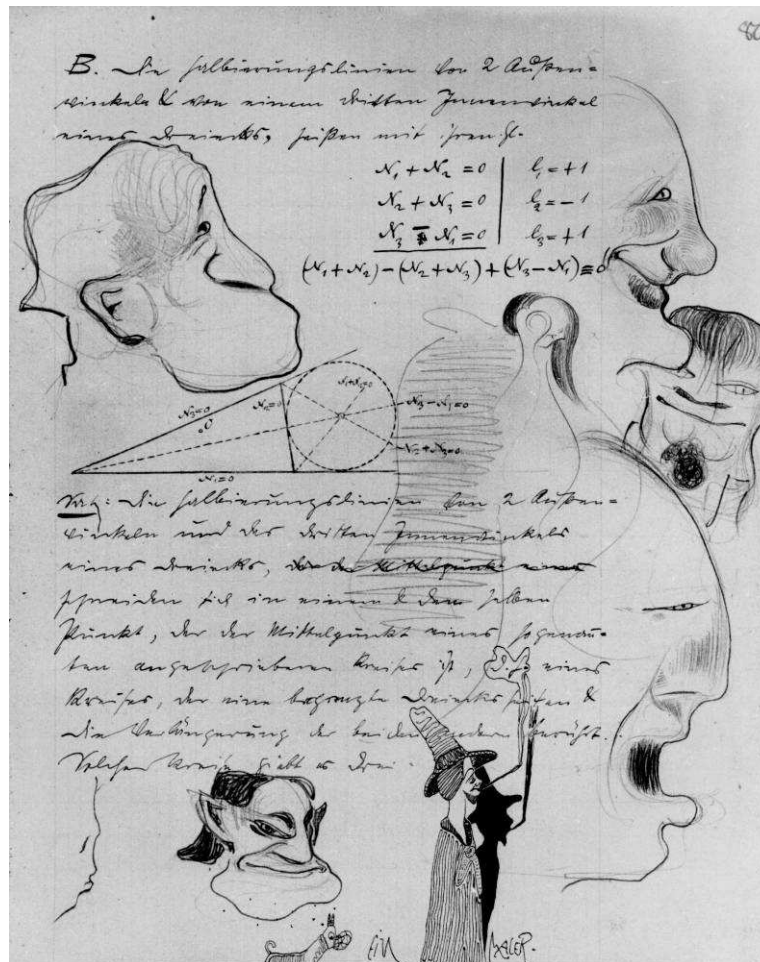 B. Die Halbierungslinien von 2 Außen-
winkeln & von einem dritten Innenwinkel
eines Dreiecks, heißen mit
N₁ + N₂ = 0 | l₁ = +1
N₂ + N₃ = 0 | l₂ = -1
N₃ - N₁ = 0 | l₃ = +1
(N₁ + N₂) - (N₂ + N₃) + (N₃ - N₁) ≡ 0
N₁+N₂=0
N₃=0
N₂=0
N₃-N₁=0
O
N₂+N₃=0
N₁=0
Satz: Die Halbierungslinien von 2 Außen-
winkeln und des dritten Innenwinkels
eines Dreiecks,
schneiden sich in einem & dem selben
Punkt, der der Mittelpunkt eines sogenann-
ten angeschriebenen Kreises ist, eines
Kreises, der eine begrenzte Dreiecksseiten &
die Verlängerung der beiden andern berührt.
Solcher Kreise giebt es drei.